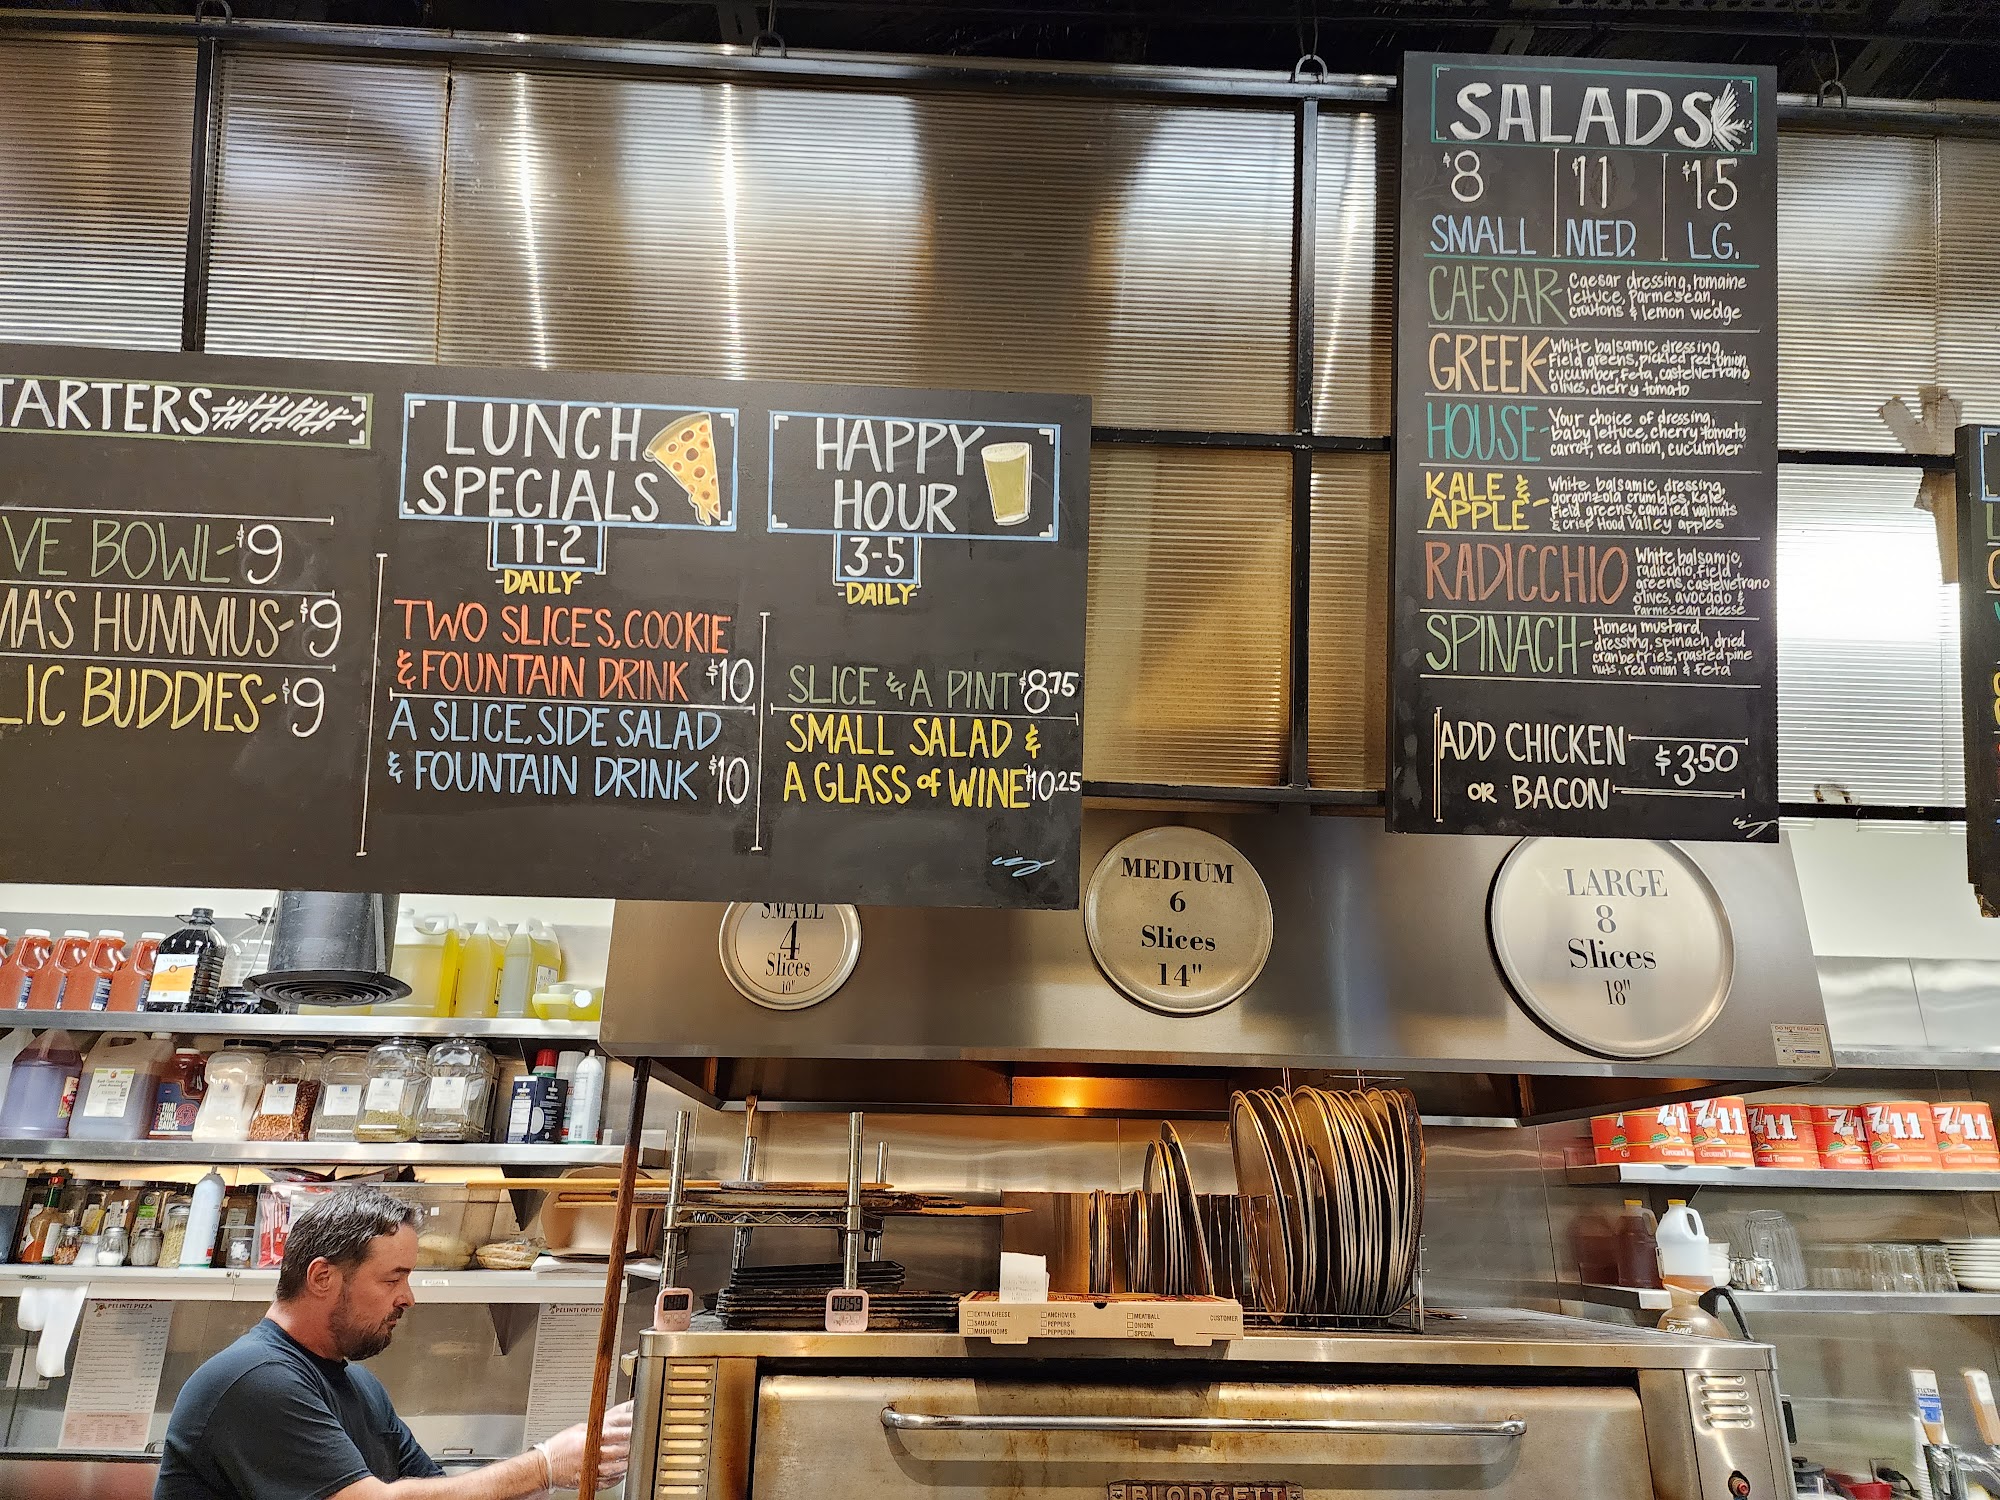 TARTERS
VE BOWL-$9
MA'S HUMMUS-$9
LIC BUDDIES-$9
LUNCH
SPECIALS
11-2
-DAILY-
TWO SLICES, COOKIE
& FOUNTAIN DRINK $10
A SLICE, SIDE SALAD
& FOUNTAIN DRINK $10
HAPPY
HOUR
3-5
-DAILY-
SLICE & A PINT $8.75
SMALL SALAD &
A GLASS of WINE $10.25
SALADS
$8 $11 $15
SMALL MED. LG.
CAESAR- Caesar dressing, romaine
lettuce, Parmesean,
croutons & lemon wedge
GREEK- White balsamic dressing,
Field greens, pickled red onion
cucumber, Feta, castelvetrano
olives, cherry tomato
HOUSE- Your choice of dressing,
baby lettuce, cherry tomato,
carrot, red onion, cucumber
KALE &
APPLE- White balsamic dressing,
gorgonzola crumbles, Kale,
Field greens, candied walnuts
& crisp Hood Valley apples
RADICCHIO White balsamic,
radicchio, field
greens, castelvetrano
olives, avocado &
Parmesean cheese
SPINACH- Honey mustard
dressing, spinach, dried
cranberries, roasted pine
nuts, red onion & Feta
ADD CHICKEN
OR BACON $3.50
SMALL
4
Slices
10"
MEDIUM
6
Slices
14"
LARGE
8
Slices
18"
DO NOT REMOVE
THAI
CHILI
SAUCE
7/11
Ground Tomatoes
7/11
7/11
7/11
7/11
PELINTI PIZZA
PELINTI OPTION
EXTRA CHEESE
SAUSAGE
MUSHROOMS
ANCHOVIES
PEPPERS
PEPPERONI
MEATBALL
ONIONS
SPECIAL
CUSTOMER
BLODGETT